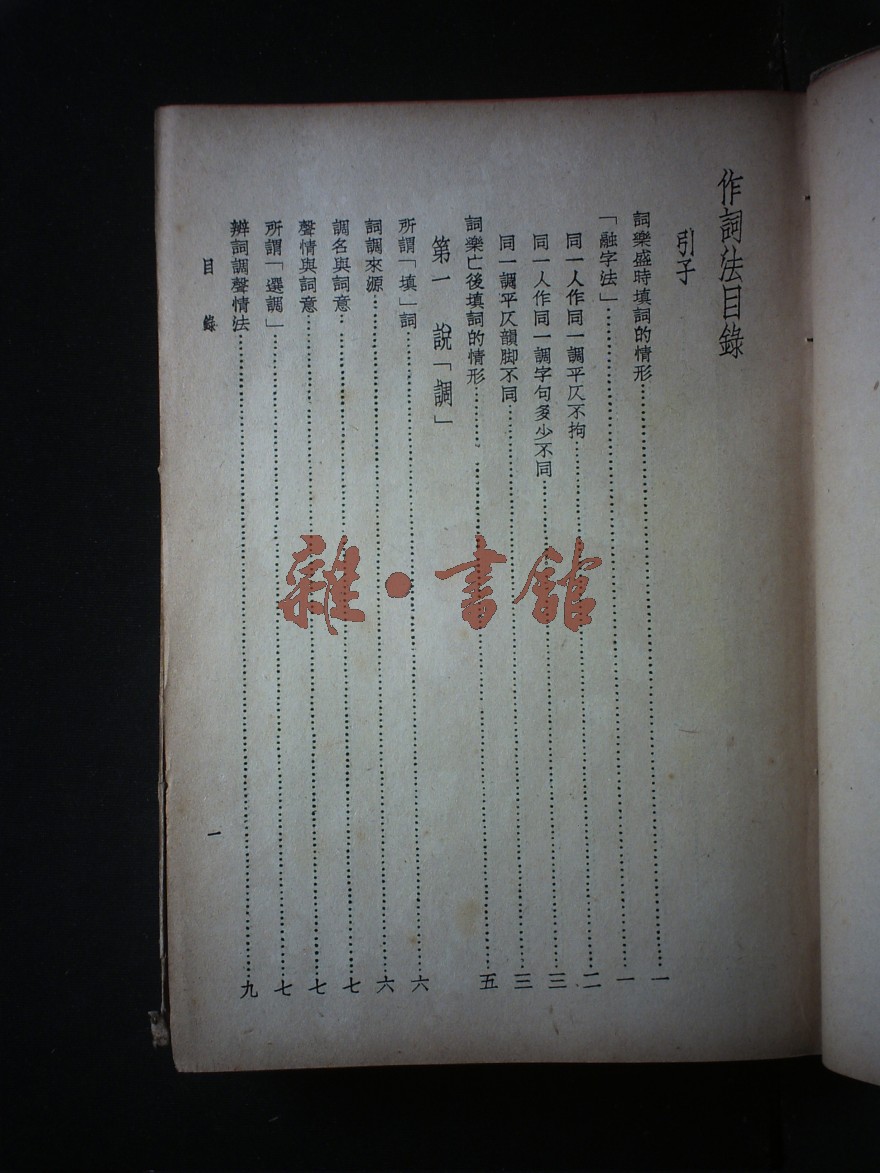 作詞法目錄
引子
詞樂盛時填詞的情形⋯⋯一
「融字法」⋯⋯一
同一人作同一調平仄不拘⋯⋯二
同一人作同一調字句多少不同⋯⋯三
同一調平仄韻脚不同⋯⋯三
詞樂亡後填詞的情形⋯⋯五
第一 說「調」
所謂「填」詞⋯⋯六
詞調來源⋯⋯六
調名與詞意⋯⋯七
聲情與詞意⋯⋯七
所謂「選調」⋯⋯七
辨詞調聲情法⋯⋯九
目錄 一
雜·書館